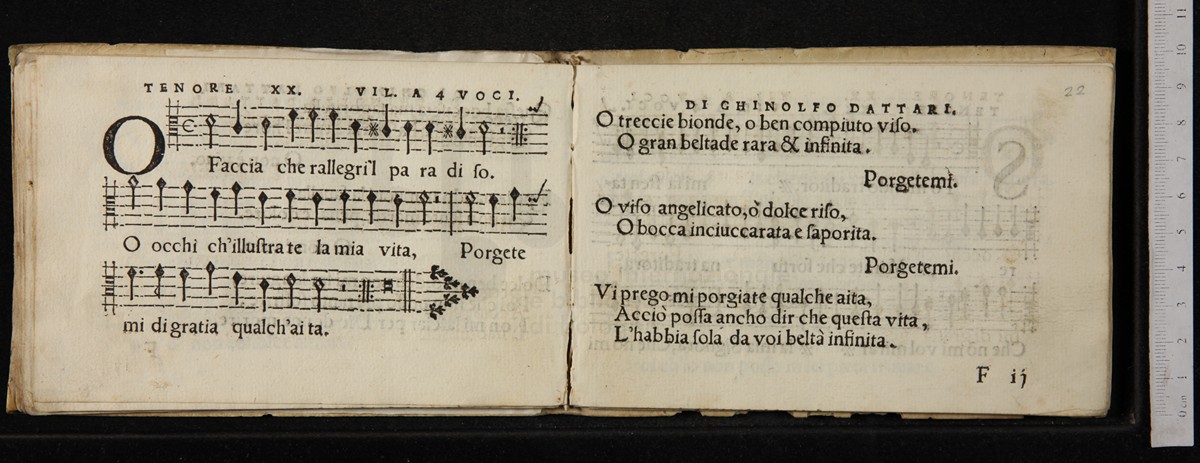 TENORE XX. VIL. A 4 VOCI.
O Faccia che rallegri'l pa ra di so.
O occhi ch'illuſtra te la mia vita, Porgete
mi di gratia qualch'ai ta.
22
DI GHINOLFO DATTARI.
O treccie bionde, o ben compiuto viſo.
O gran beltade rara & infinita.
Porgetemi.
O viſo angelicato, o dolce riſo,
O bocca inciuccarata e ſaporita.
Porgetemi.
Vi prego mi porgiate qualche aita,
Acciò poſſa ancho dir che queſta vita,
L'habbia ſola da voi beltà infinita.
F ij
0 cm 1 2 3 4 5 6 7 8 9 10 11